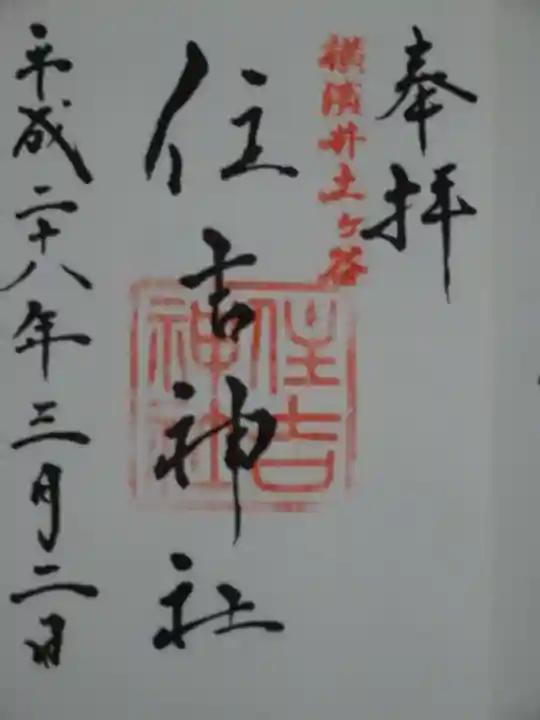 奉拝
横濱井土ヶ谷
住吉神社
住吉神社
平成二十八年三月二日